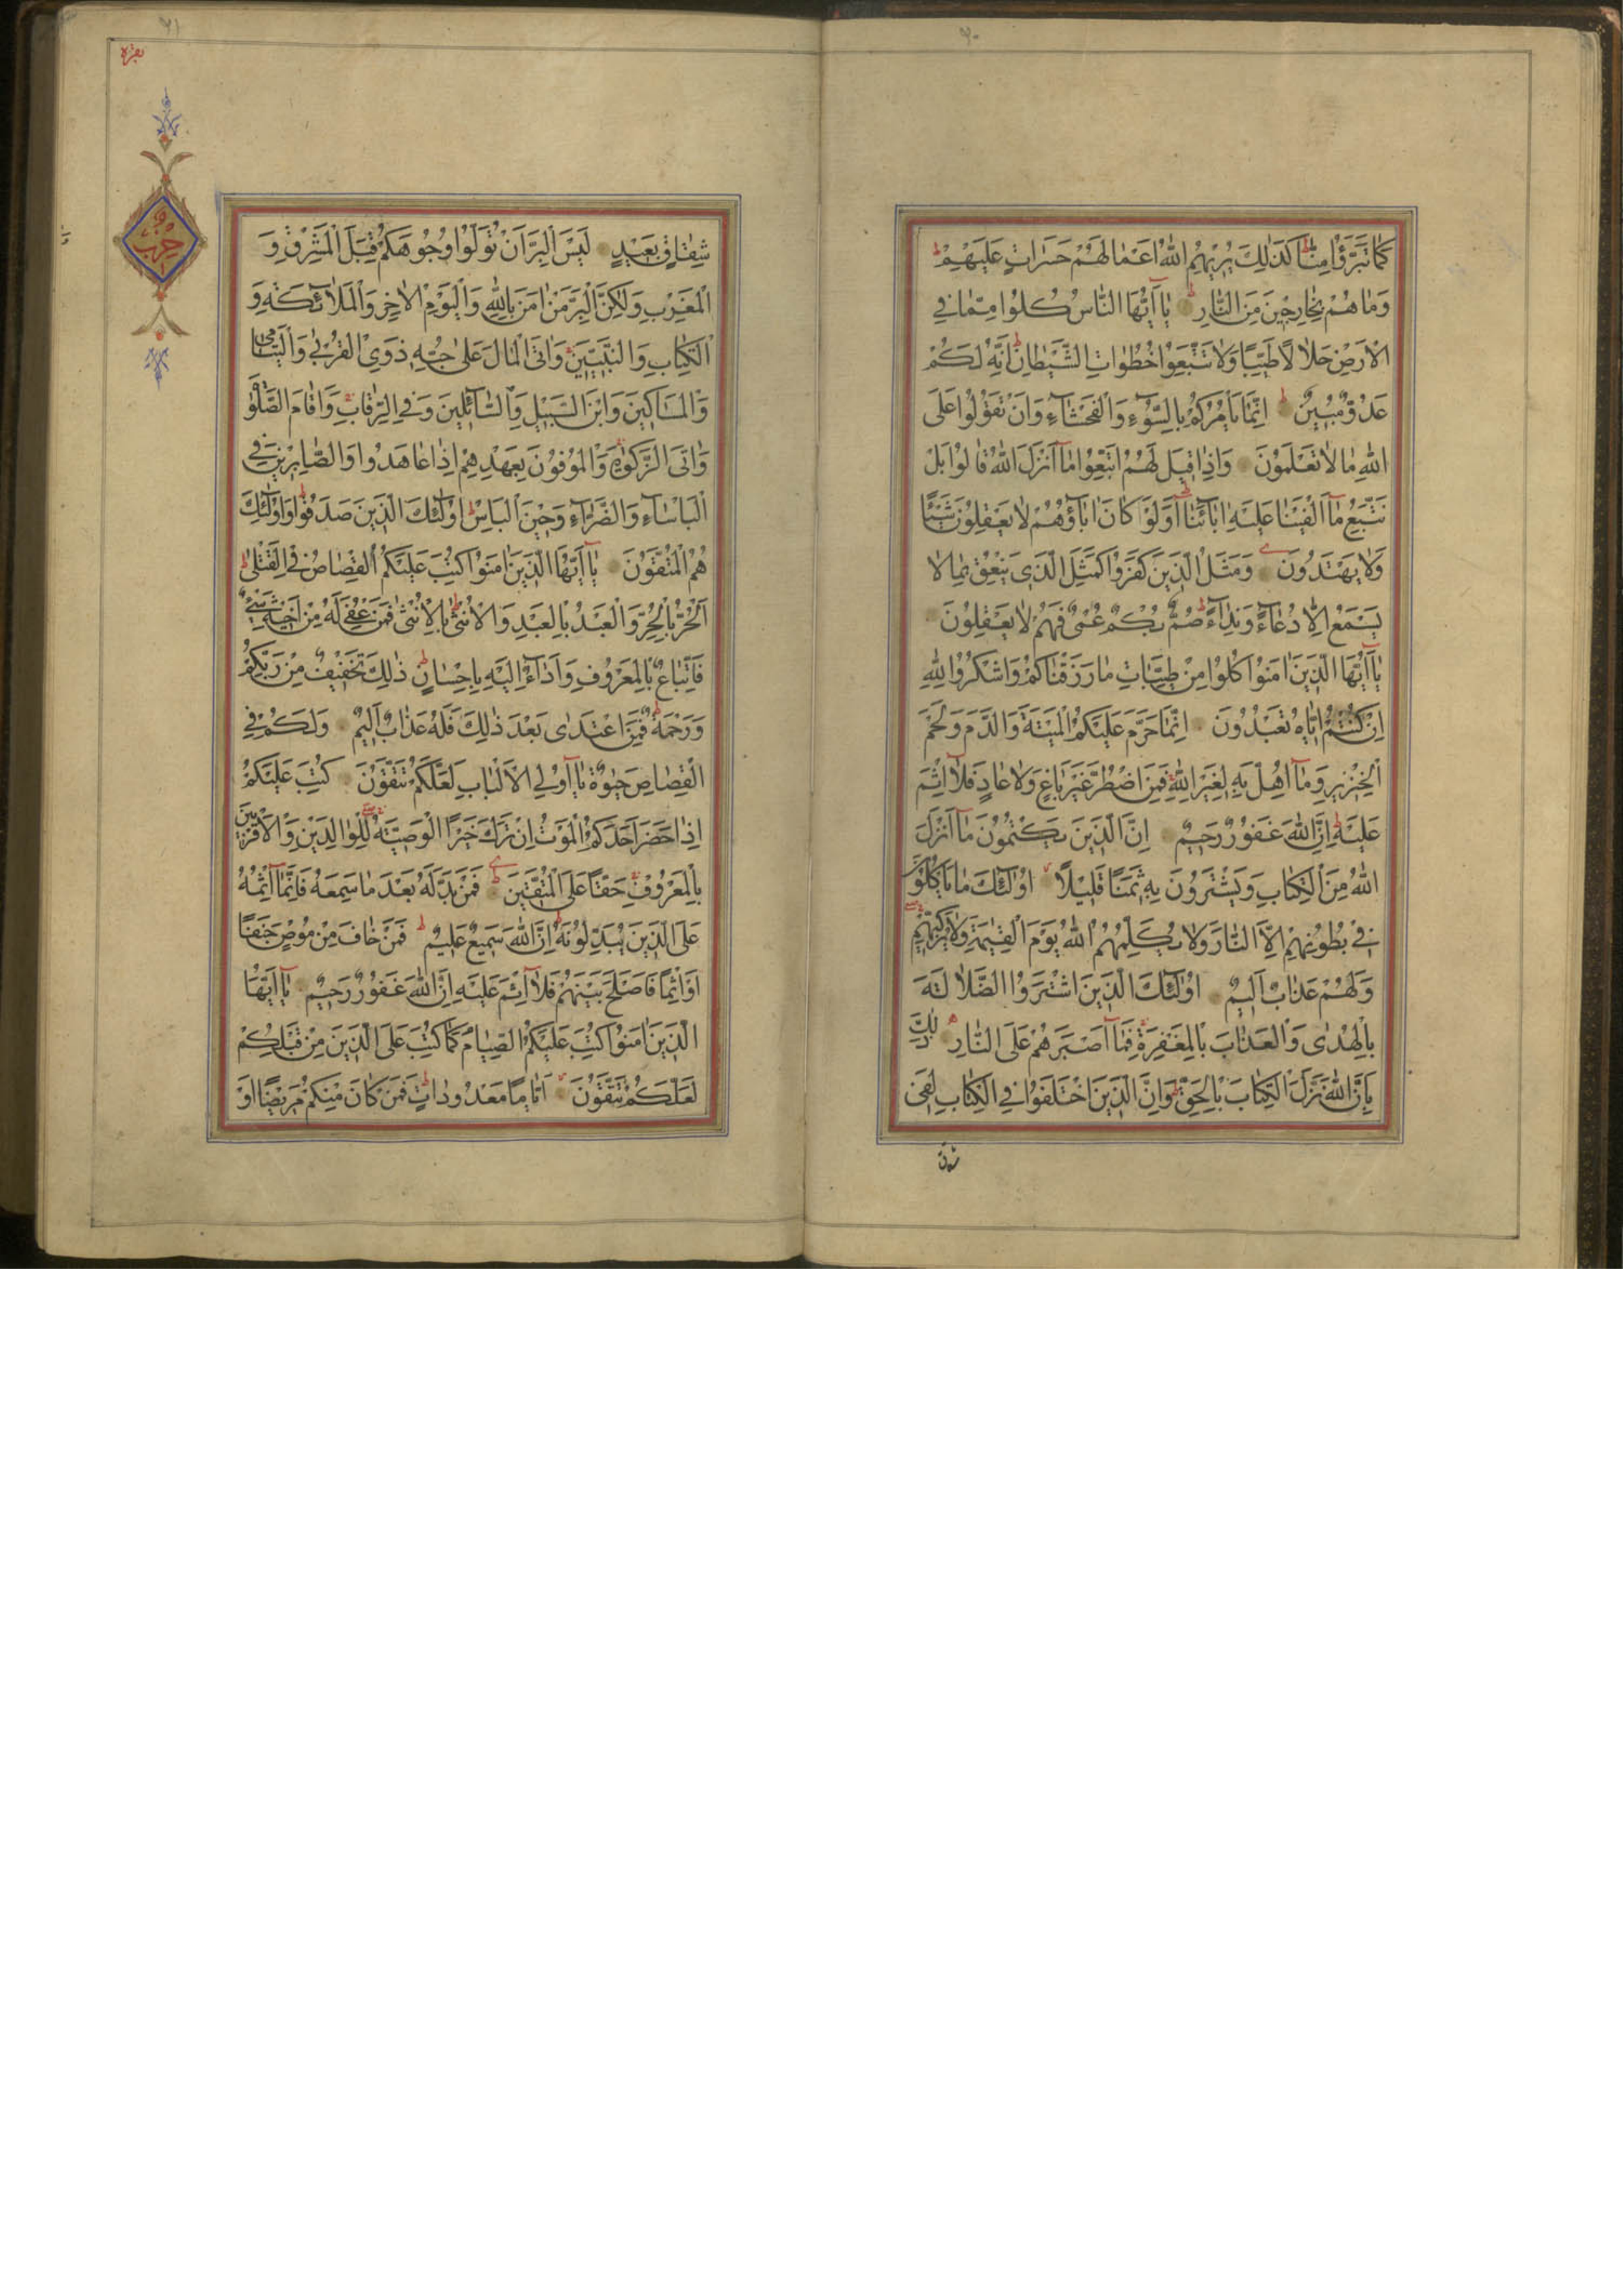 ٦٠
كَمَا تَبَرَّؤُا مِنَّا كَذٰلِكَ يُرِيهِمُ اللّٰهُ اَعْمَالَهُمْ حَسَرَاتٍ عَلَيْهِمْ ط
وَمَا هُمْ بِخَارِجِينَ مِنَ النَّارِ ط يَآ اَيُّهَا النَّاسُ كُلُوا مِمَّا فِي
الْاَرْضِ حَلَالًا طَيِّبًا وَلَا تَتَّبِعُوا خُطُوَاتِ الشَّيْطَانِ ط اِنَّهُ لَكُمْ
عَدُوٌّ مُبِينٌ ط اِنَّمَا يَأْمُرُكُمْ بِالسُّوۤءِ وَالْفَحْشَاۤءِ وَاَنْ تَقُولُوا عَلَى
اللّٰهِ مَا لَا تَعْلَمُونَ وَاِذَا قِيلَ لَهُمُ اتَّبِعُوا مَآ اَنْزَلَ اللّٰهُ قَالُوا بَلْ
نَتَّبِعُ مَآ اَلْفَيْنَا عَلَيْهِ اٰبَاۤئَنَا ط اَوَلَوْ كَانَ اٰبَاۤؤُهُمْ لَا يَعْقِلُونَ شَيْئًا
وَلَا يَهْتَدُونَ وَمَثَلُ الَّذِينَ كَفَرُوا كَمَثَلِ الَّذِي يَنْعِقُ بِمَا لَا
يَسْمَعُ اِلَّا دُعَاۤءً وَنِدَاۤءً ط صُمٌّ بُكْمٌ عُمْيٌ فَهُمْ لَا يَعْقِلُونَ
يَآ اَيُّهَا الَّذِينَ اٰمَنُوا كُلُوا مِنْ طَيِّبَاتِ مَا رَزَقْنَاكُمْ وَاشْكُرُوا لِلّٰهِ
اِنْ كُنْتُمْ اِيَّاهُ تَعْبُدُونَ اِنَّمَا حَرَّمَ عَلَيْكُمُ الْمَيْتَةَ وَالدَّمَ وَلَحْمَ
الْخِنْزِيرِ وَمَآ اُهِلَّ بِهِ لِغَيْرِ اللّٰهِ فَمَنِ اضْطُرَّ غَيْرَ بَاغٍ وَلَا عَادٍ فَلَآ اِثْمَ
عَلَيْهِ ط اِنَّ اللّٰهَ غَفُورٌ رَحِيمٌ اِنَّ الَّذِينَ يَكْتُمُونَ مَآ اَنْزَلَ
اللّٰهُ مِنَ الْكِتَابِ وَيَشْتَرُونَ بِهِ ثَمَنًا قَلِيلًا اُولٰئِكَ مَا يَأْكُلُونَ
فِي بُطُونِهِمْ اِلَّا النَّارَ وَلَا يُكَلِّمُهُمُ اللّٰهُ يَوْمَ الْقِيٰمَةِ وَلَا يُزَكِّيهِمْ
وَلَهُمْ عَذَابٌ اَلِيمٌ اُولٰئِكَ الَّذِينَ اشْتَرَوُا الضَّلَالَةَ
بِالْهُدٰى وَالْعَذَابَ بِالْمَغْفِرَةِ فَمَآ اَصْبَرَهُمْ عَلَى النَّارِ ذٰلِكَ
بِاَنَّ اللّٰهَ نَزَّلَ الْكِتَابَ بِالْحَقِّ ط وَاِنَّ الَّذِينَ اخْتَلَفُوا فِي الْكِتَابِ لَفِي
٦١
بقره
حزب
شِقَاقٍ بَعِيدٍ لَيْسَ الْبِرَّ اَنْ تُوَلُّوا وُجُوهَكُمْ قِبَلَ الْمَشْرِقِ وَ
الْمَغْرِبِ وَلٰكِنَّ الْبِرَّ مَنْ اٰمَنَ بِاللّٰهِ وَالْيَوْمِ الْاٰخِرِ وَالْمَلَاۤئِكَةِ وَ
الْكِتَابِ وَالنَّبِيِّينَ وَاٰتَى الْمَالَ عَلٰى حُبِّهِ ذَوِي الْقُرْبٰى وَالْيَتَامٰى
وَالْمَسَاكِينَ وَابْنَ السَّبِيلِ وَالسَّاۤئِلِينَ وَفِي الرِّقَابِ وَاَقَامَ الصَّلٰوةَ
وَاٰتَى الزَّكٰوةَ وَالْمُوفُونَ بِعَهْدِهِمْ اِذَا عَاهَدُوا وَالصَّابِرِينَ فِي
الْبَأْسَاۤءِ وَالضَّرَّاۤءِ وَحِينَ الْبَأْسِ ط اُولٰئِكَ الَّذِينَ صَدَقُوا ط وَاُولٰئِكَ
هُمُ الْمُتَّقُونَ يَآ اَيُّهَا الَّذِينَ اٰمَنُوا كُتِبَ عَلَيْكُمُ الْقِصَاصُ فِي الْقَتْلٰى ط
اَلْحُرُّ بِالْحُرِّ وَالْعَبْدُ بِالْعَبْدِ وَالْاُنْثٰى بِالْاُنْثٰى ط فَمَنْ عُفِيَ لَهُ مِنْ اَخِيهِ شَيْءٌ
فَاتِّبَاعٌ بِالْمَعْرُوفِ وَاَدَاۤءٌ اِلَيْهِ بِاِحْسَانٍ ط ذٰلِكَ تَخْفِيفٌ مِنْ رَبِّكُمْ
وَرَحْمَةٌ ط فَمَنِ اعْتَدٰى بَعْدَ ذٰلِكَ فَلَهُ عَذَابٌ اَلِيمٌ وَلَكُمْ فِي
الْقِصَاصِ حَيٰوةٌ يَآ اُولِي الْاَلْبَابِ لَعَلَّكُمْ تَتَّقُونَ كُتِبَ عَلَيْكُمْ
اِذَا حَضَرَ اَحَدَكُمُ الْمَوْتُ اِنْ تَرَكَ خَيْرًا الْوَصِيَّةُ لِلْوَالِدَيْنِ وَالْاَقْرَبِينَ
بِالْمَعْرُوفِ حَقًّا عَلَى الْمُتَّقِينَ ط فَمَنْ بَدَّلَهُ بَعْدَ مَا سَمِعَهُ فَاِنَّمَآ اِثْمُهُ
عَلَى الَّذِينَ يُبَدِّلُونَهُ ط اِنَّ اللّٰهَ سَمِيعٌ عَلِيمٌ ط فَمَنْ خَافَ مِنْ مُوصٍ جَنَفًا
اَوْ اِثْمًا فَاَصْلَحَ بَيْنَهُمْ فَلَآ اِثْمَ عَلَيْهِ اِنَّ اللّٰهَ غَفُورٌ رَحِيمٌ يَآ اَيُّهَا
الَّذِينَ اٰمَنُوا كُتِبَ عَلَيْكُمُ الصِّيَامُ كَمَا كُتِبَ عَلَى الَّذِينَ مِنْ قَبْلِكُمْ
لَعَلَّكُمْ تَتَّقُونَ اَيَّامًا مَعْدُودَاتٍ ط فَمَنْ كَانَ مِنْكُمْ مَرِيضًا اَوْ